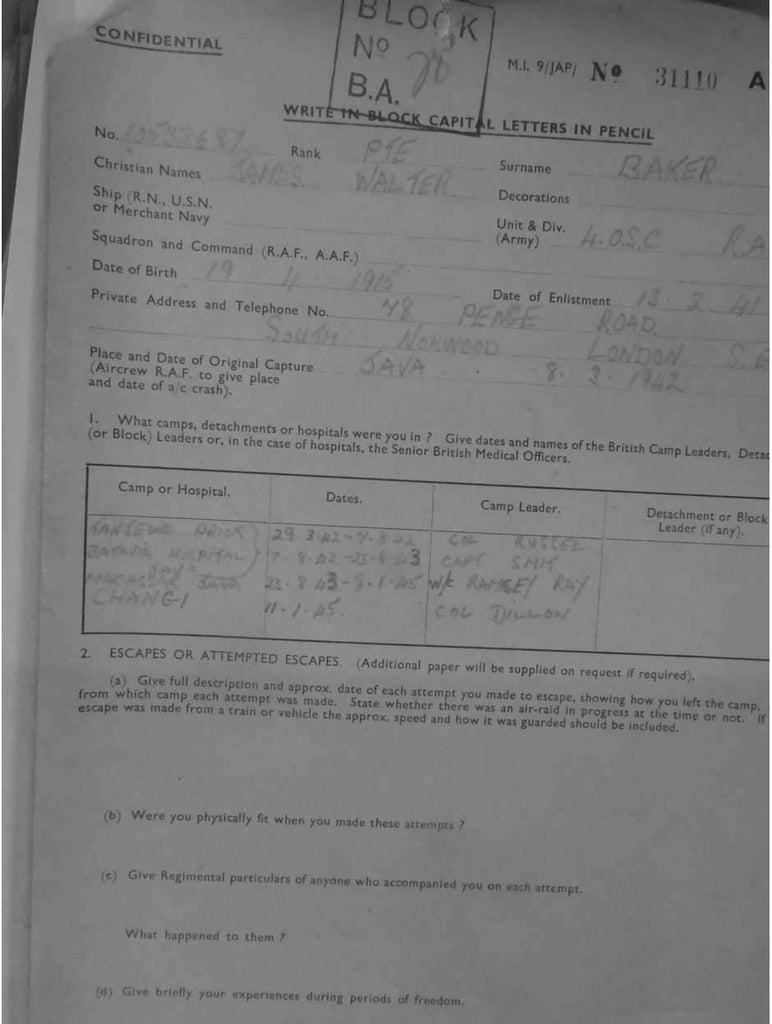 BLOCK
CONFIDENTIAL
No
M.I. 9/JAP/ No 31110 A
B.A.
WRITE IN BLOCK CAPITAL LETTERS IN PENCIL
No. Rank PTE Surname BAKER
Christian Names JAMES WALTER Decorations
Ship (R.N., U.S.N.
or Merchant Navy
Unit & Div.
(Army) 4.O.S.C RA
Squadron and Command (R.A.F., A.A.F.)
Date of Birth 19 4 1915 Date of Enlistment 13 2 41
Private Address and Telephone No. 48 PENGE ROAD
SOUTH NORWOOD LONDON S.E
Place and Date of Original Capture JAVA 8 3 1942
(Aircrew R.A.F. to give place
and date of a/c crash).
1. What camps, detachments or hospitals were you in ? Give dates and names of the British Camp Leaders, Detac
(or Block) Leaders or, in the case of hospitals, the Senior British Medical Officers.
Camp or Hospital. Dates. Camp Leader. Detachment or Block
Leader (if any).
PRIOK 29.3.42-7.8.42 COL RUSSEL
BATAVIA HOSPITAL 7.8.42-23.8.43 CAPT SMIT
JAVA
23.8.43-8.1.45 W/C RAMSEY RAY
CHANGI 11.1.45. COL DILLON
2. ESCAPES OR ATTEMPTED ESCAPES. (Additional paper will be supplied on request if required).
(a) Give full description and approx. date of each attempt you made to escape, showing how you left the camp,
from which camp each attempt was made. State whether there was an air-raid in progress at the time or not. If
escape was made from a train or vehicle the approx. speed and how it was guarded should be included.
(b) Were you physically fit when you made these attempts ?
(c) Give Regimental particulars of anyone who accompanied you on each attempt.
What happened to them ?
(d) Give briefly your experiences during periods of freedom.